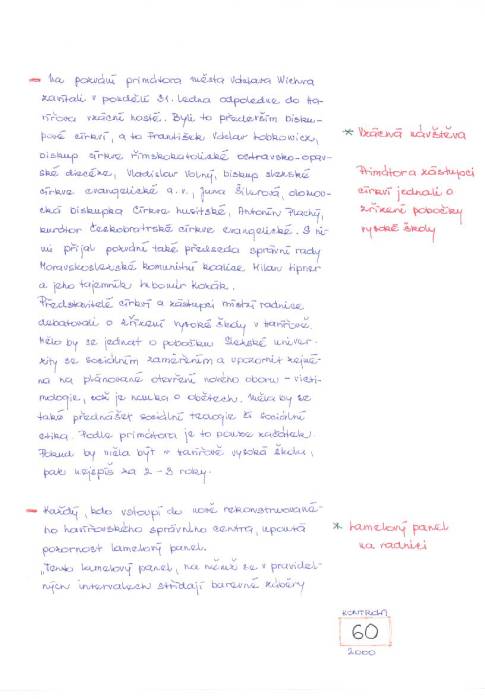 - Na pozvání primátora města Václava Wichra
zavítali v pondělí 31. ledna odpoledne do ha-
vířova vzácní hosté. Byli to především bisku-
pové církví, a to František Václav Lobkowicz,
biskup církve římskokatolické ostravsko-opav-
ské diecéze, Vladislav Volný, biskup slezské
církve evangelické a.v., Jana Šilerová, olomou-
cká biskupka Církve husitské, Antonín Plachý,
kurátor Českobratrské církve evangelické. S ni-
mi přijal pozvání také předseda správní rady
Moravskoslezské komunitní koalice Milan Lipner
a jeho tajemník Lubomír Kozák.
Představitelé církví a zástupci místní radnice
debatovali o zřízení vysoké školy v havířově.
Mělo by se jednat o pobočku Slezské univer-
zity se sociálním zaměřením a upozornit zejmé-
na na plánované otevření nového oboru - victi-
mologie, což je nauka o obětech. Měla by se
také přednášet sociální teologie či sociální
etika. Podle primátora je to pouze začátek.
Pokud by měla být v havířově vysoká škola,
pak nejspíš za 2-3 roky.
* Vzácná návštěva
Primátor a zástupci
církví jednali o
zřízení pobočky
vysoké školy
- Každý, kdo vstoupí do nově rekonstruované-
ho havířovského správního centra, upoutá
pozornost lamelový panel.
"Tento lamelový panel, na němž se v pravidel-
ných intervalech střídají barevné záběry
* Lamelový panel
na radnici
KONTROLA
60
2000